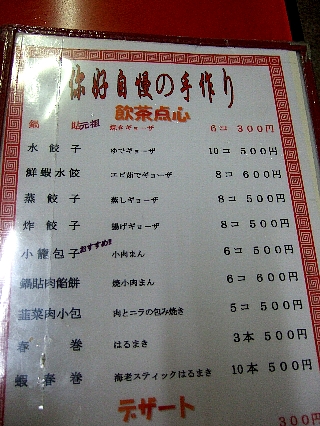 你好自慢の手作り
飲茶点心
鍋貼 元祖 焼きギョーザ 6コ 300円
水餃子 ゆでギョーザ 10コ 500円
鮮蝦水餃 エビ茹でギョーザ 8コ 600円
蒸餃子 蒸しギョーザ 8コ 500円
炸餃子 揚げギョーザ 8コ 500円
小籠包子 おすすめ!! 小肉まん 6コ 500円
鍋貼肉餡餅 焼小肉まん 6コ 600円
韮菜肉小包 肉とニラの包み焼き 5コ 500円
春巻 はるまき 3本 500円
蝦春巻 海老スティックはるまき 10本 500円
デザート
300円